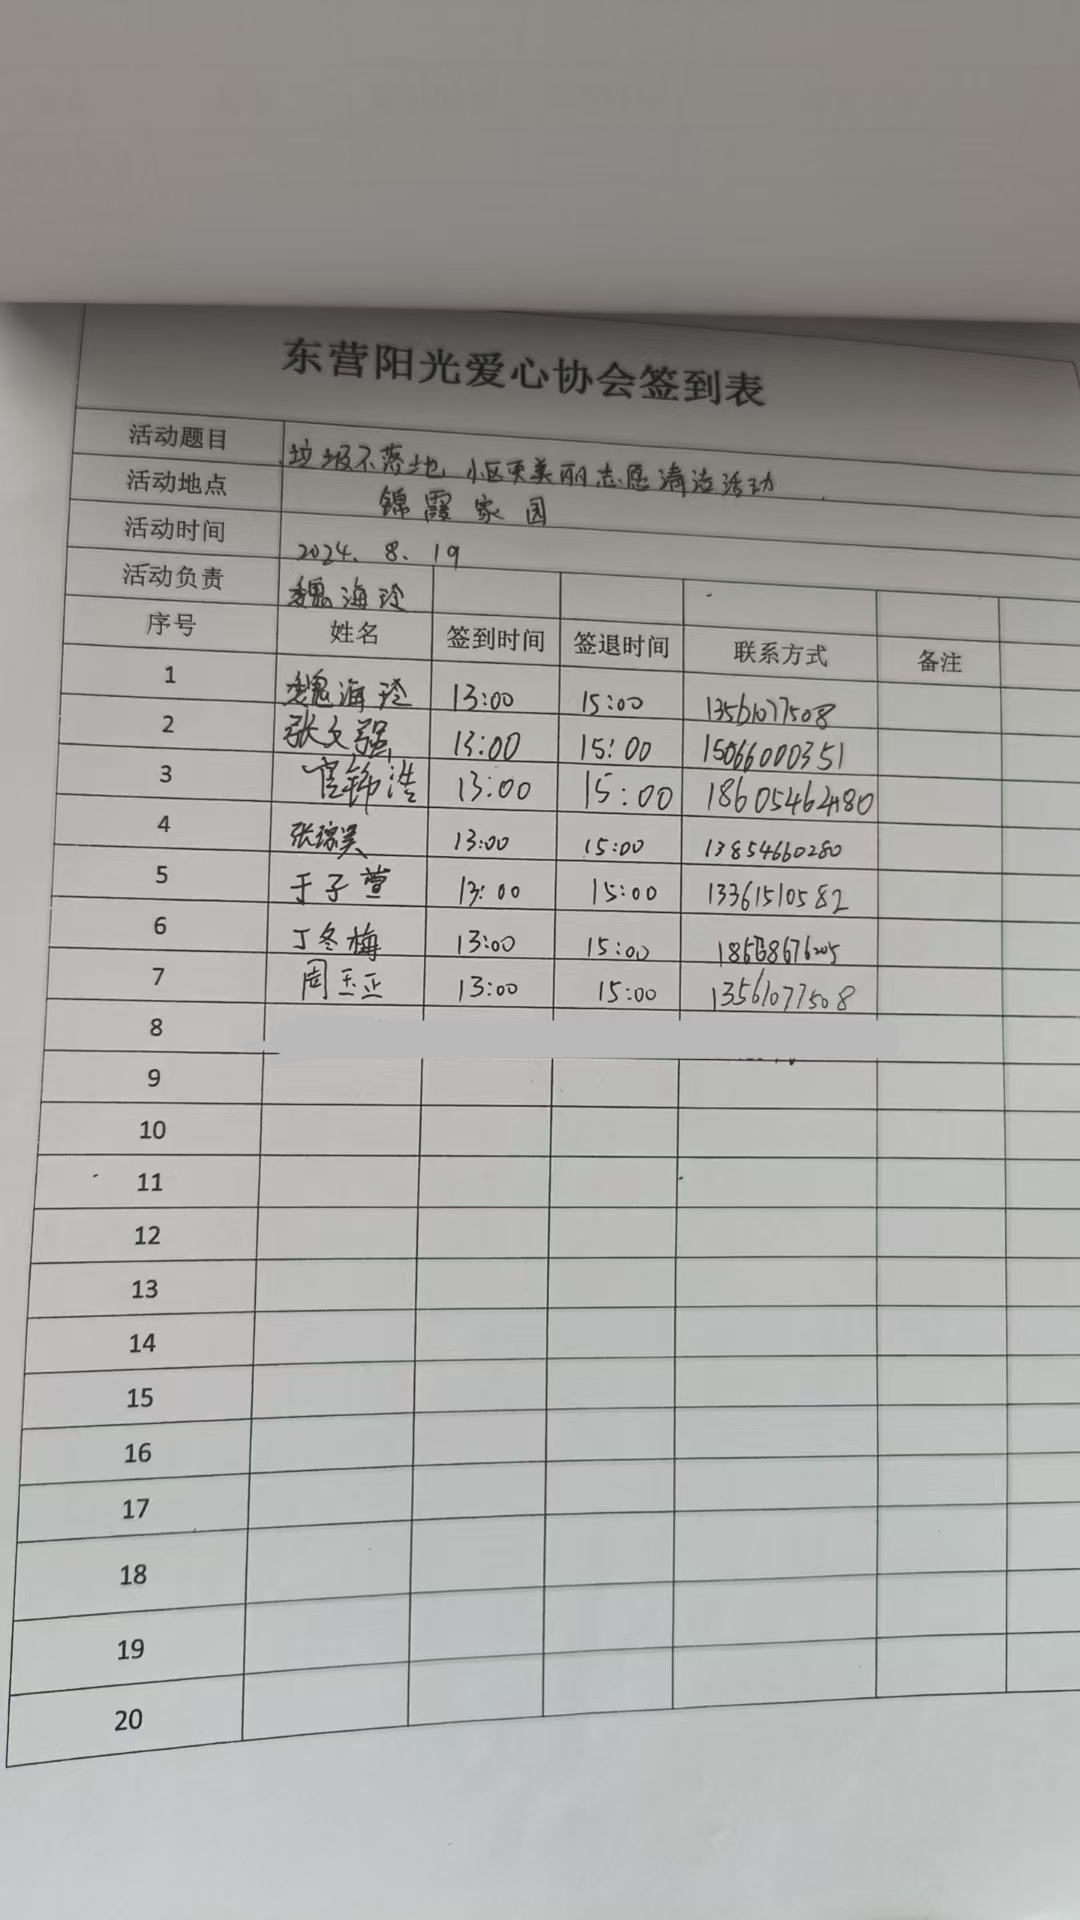 东营阳光爱心协会签到表
活动题目 垃圾不落地 小区更美丽志愿清洁活动
活动地点 锦霞家园
活动时间 2024.8.19
活动负责 魏海玲
序号 姓名 签到时间 签退时间 联系方式 备注
1 魏海玲 13:00 15:00 13561077508
2 张文强 13:00 15:00 15066000351
3 官锦浩 13:00 15:00 18605462480
4 13:00 15:00 13854660280
5 于子萱 13:00 15:00 13361510582
6 丁冬梅 13:00 15:00
7 周玉正 13:00 15:00 13561077508
8
9
10
11
12
13
14
15
16
17
18
19
20